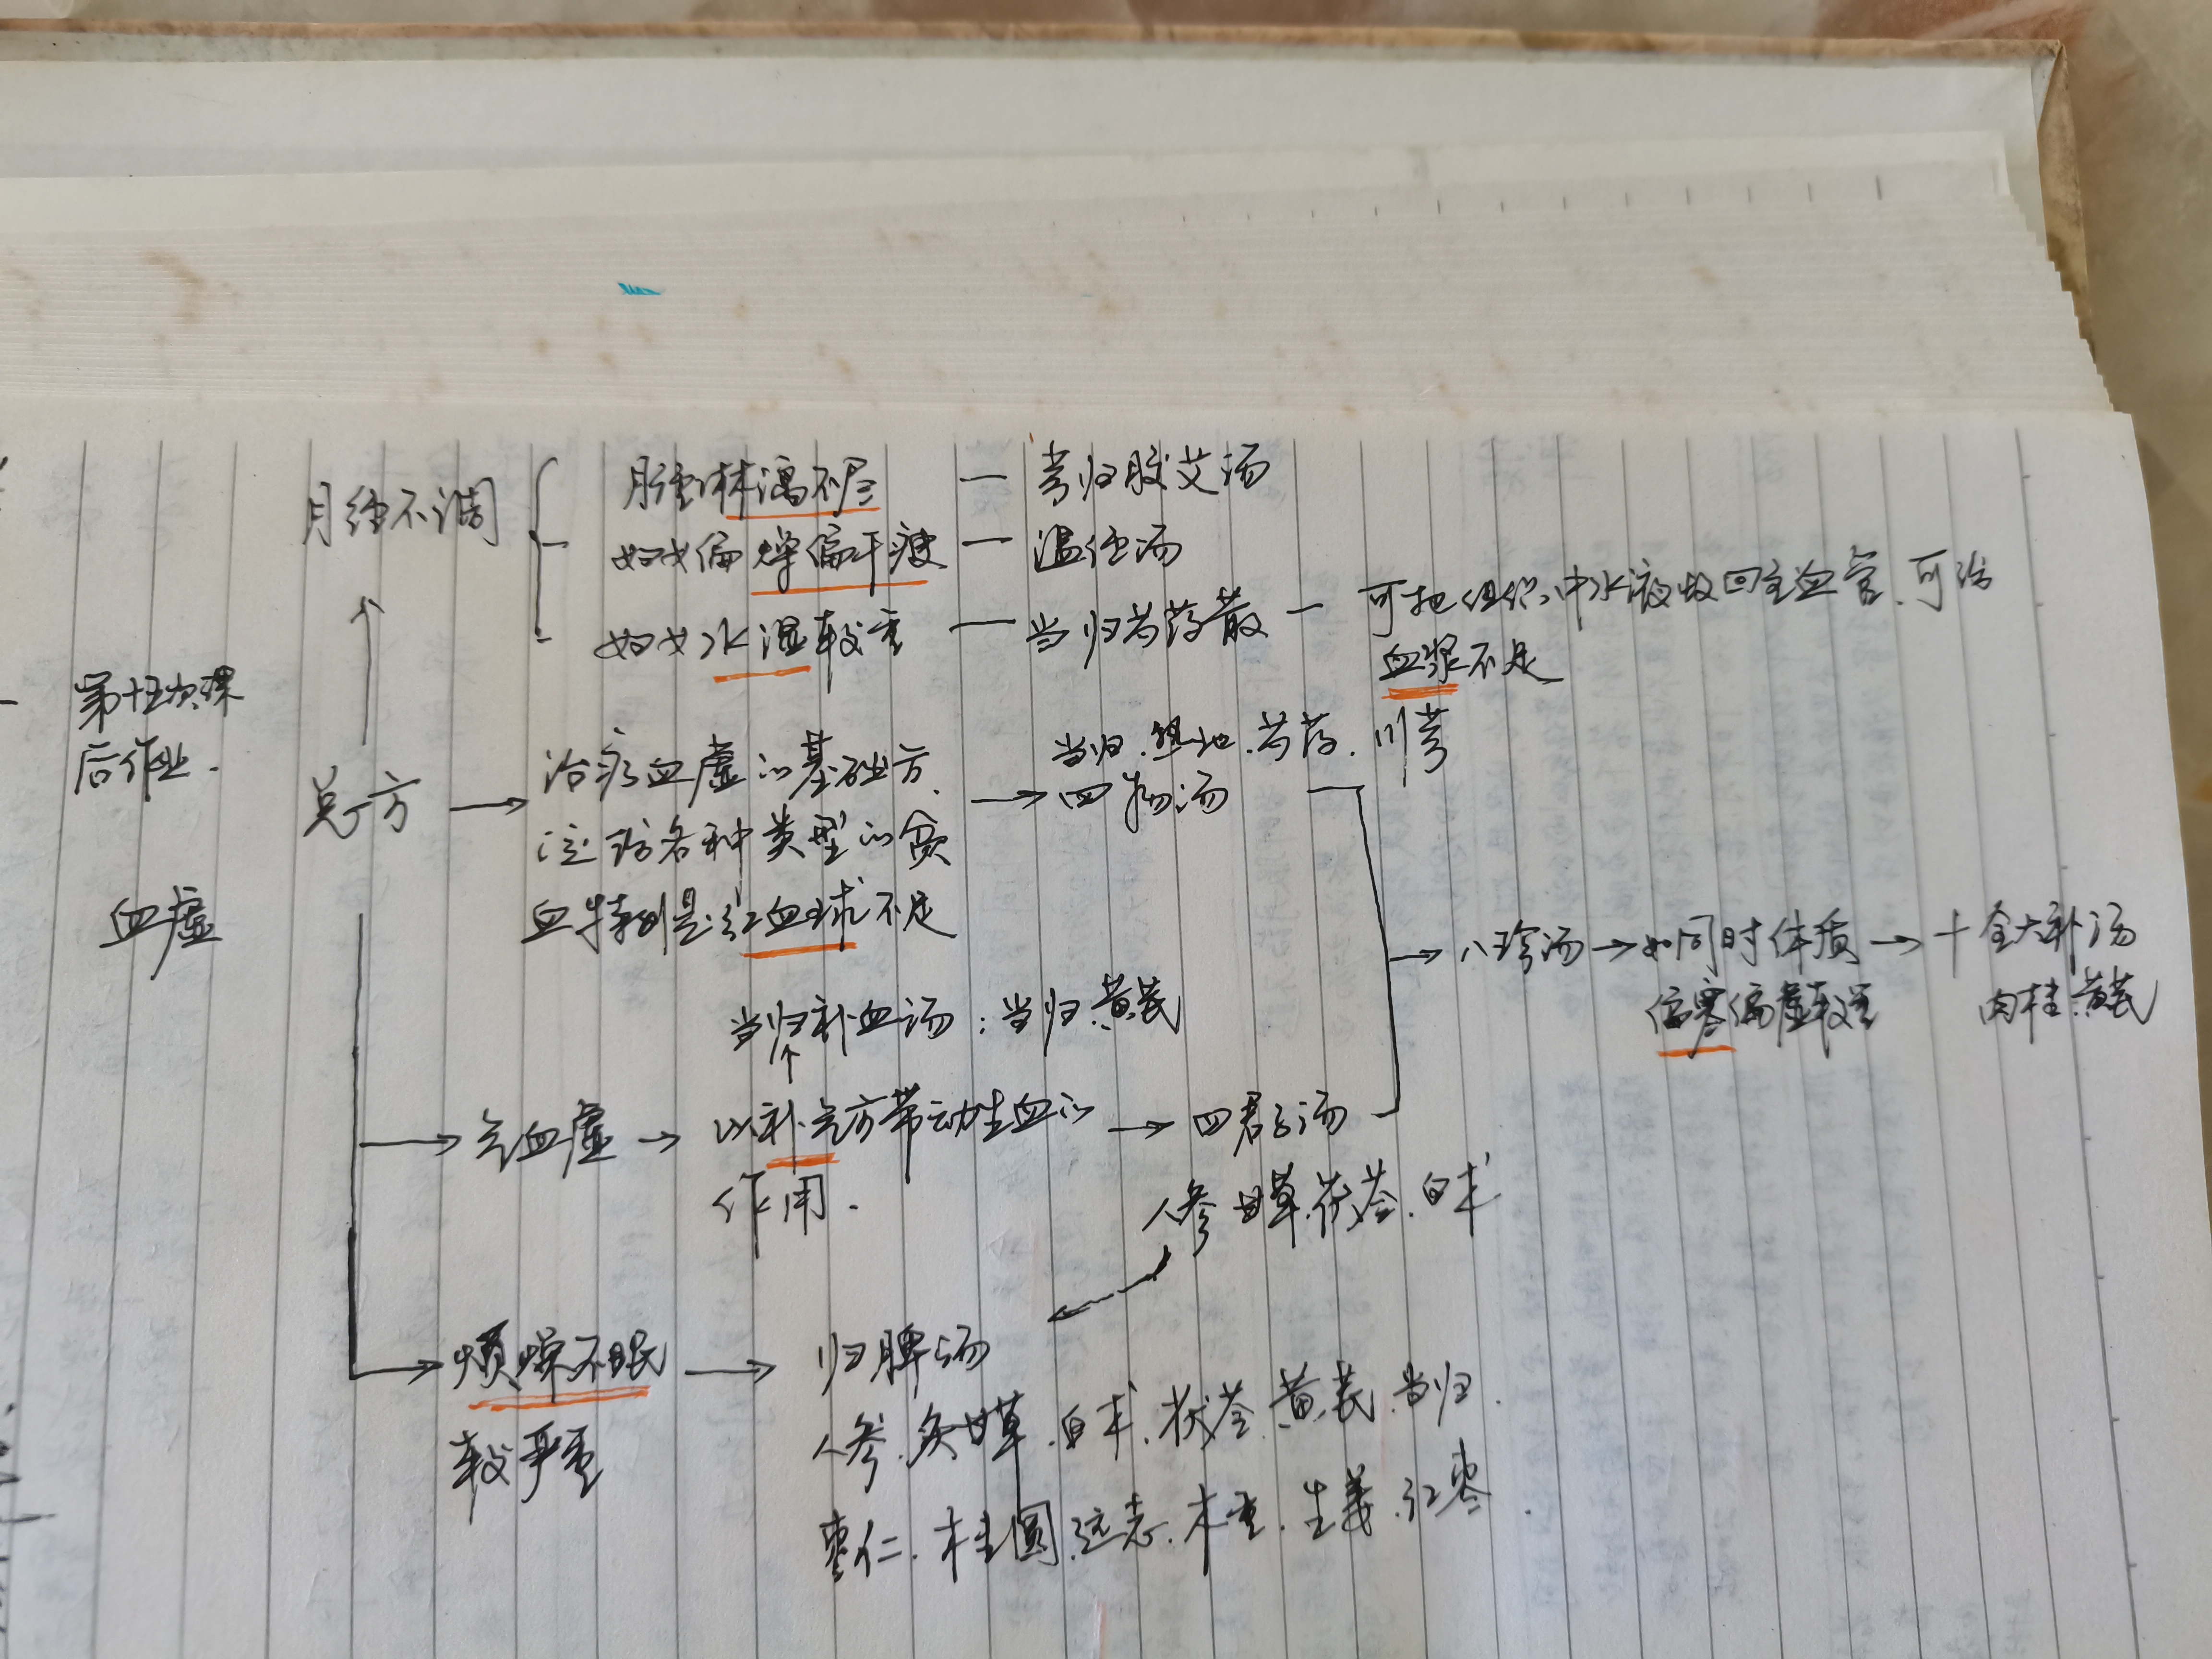 第十五次课
后作业.
血虚
月经不调
月经淋漓不尽 — 当归胶艾汤
妇女偏燥偏干瘦 — 温经汤
妇女水湿较重 — 当归芍药散 — 可把组织中水液收回至血管.可治
血浆不足
总方 → 治疗血虚的基础方.
泛治各种类型的贫
血特别是红血球不足
→ 四物汤
当归.熟地.芍药.川芎
当归补血汤:当归.黄芪
气血虚 → 以补气方带动生血的
作用.
→ 四君子汤
人参.甘草.茯苓.白术
→ 八珍汤 → 如同时体质
偏寒偏虚较重
→ 十全大补汤
肉桂.黄芪
烦燥不眠
较严重
→ 归脾汤
人参.炙甘草.白术.茯苓.黄芪.当归.
枣仁.桂圆.远志.木香.生姜.红枣.